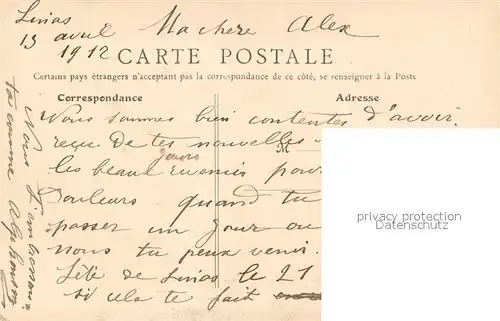 Linas
13 avril
1912
Ma chere Alex
CARTE POSTALE
Certains pays étrangers n'acceptant pas la correspondance de ce côté, se renseigner à la Poste
Correspondance
Adresse
Nous sommes bien contentes d'avoir
reçu de tes nouvelles
M
les beaux jours pour
Douleurs quand tu
passer un jour ou
nous tu peux venir
fête de Linas le 21
si cela te fait
Nous t'embrassons
ta comme Alphonsine
privacy protection
Datenschutz